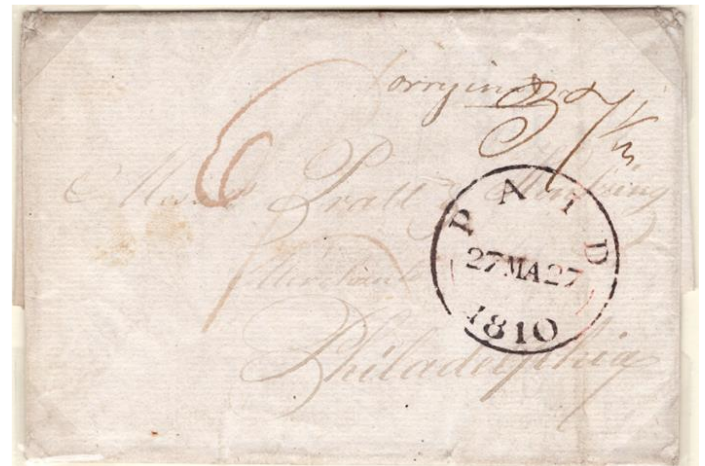 37 1/2
6
Messrs Pratt &
Merchants
Philadelphia
PAID
27MA27
1810